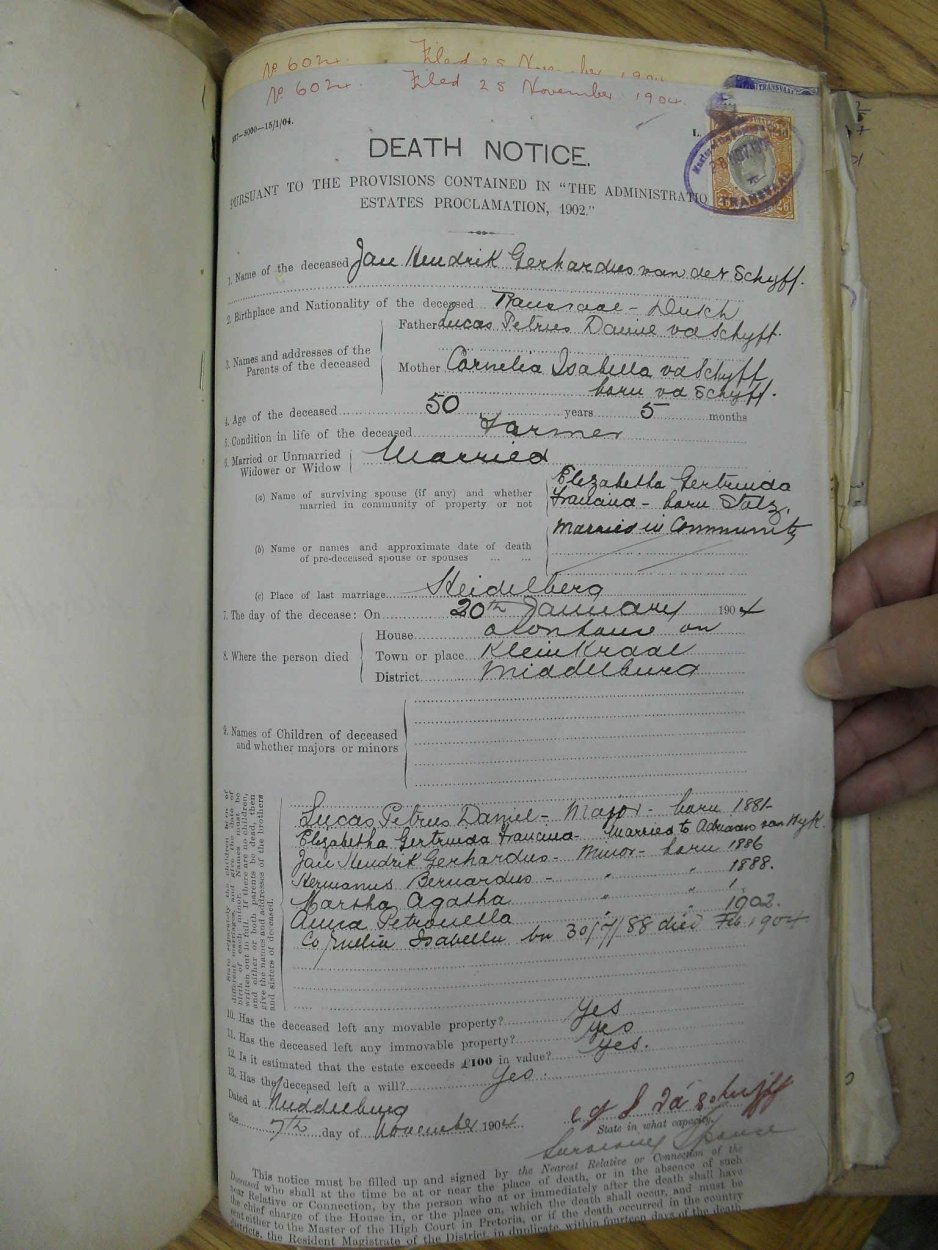 No 6024. Filed 25 November 1904
No 6024. Filed 25 November 1904.
5000—15/1/04.
TRANSVAAL
DEATH NOTICE.
PURSUANT TO THE PROVISIONS CONTAINED IN "THE ADMINISTRATIO
ESTATES PROCLAMATION, 1902."
1. Name of the deceased Jan Hendrik Gerhardus van der Schyff.
2. Birthplace and Nationality of the deceased Transvaal - Dutch
3. Names and addresses of the Parents of the deceased
Father Lucas Petrus Daniel vd Schyff
Mother Cornelia Isabella vd Schyff
born vd Schyff.
4. Age of the deceased 50 years 5 months
5. Condition in life of the deceased Farmer
6. Married or Unmarried Widower or Widow Married
(a) Name of surviving spouse (if any) and whether married in community of property or not
Elizabetha Gertruida
born
Married in Community
(b) Name or names and approximate date of death
of pre-deceased spouse or spouses ... ...
(c) Place of last marriage Heidelberg
7. The day of the decease: On 20th January 1904
8. Where the person died
House on
Town or place KleinKraal
District Middelburg
9. Names of Children of deceased
and whether majors or minors
State separately the children born of
different marriages, and give the date of
birth of each minor. Names must be
written out in full. If there are no children,
and either or both parents be dead, then
give the names and addresses of the brothers
and sisters of deceased.
Lucas Petrus Daniel - Major - born 1881
Elizabetha Gertruida - Married to Adriaan van Wyk.
Jan Hendrik Gerhardus - Minor - born 1886
Hermanus Bernardus - " " 1888.
Martha Agatha " "
Anna Petronella " " 1902.
Cornelia Isabella bn 30/7/88 died Feb. 1904
10. Has the deceased left any movable property? Yes
11. Has the deceased left any immovable property? Yes
12. Is it estimated that the estate exceeds £100 in value? Yes.
13. Has the deceased left a will? Yes.
Dated at Middelburg
the 7th day of November 1904
State in what capacity.
Surviving Spouse
This notice must be filled up and signed by the Nearest Relative or Connection of the
Deceased who shall at the time be at or near the place of death, or in the absence of such
near Relative or Connection, by the person who at or immediately after the death shall have
the chief charge of the House in, or the place on, which the death shall occur, and must be
sent either to the Master of the High Court in Pretoria, or if the death occurred in the country
districts, the Resident Magistrate of the District, in duplicate within fourteen days of the death